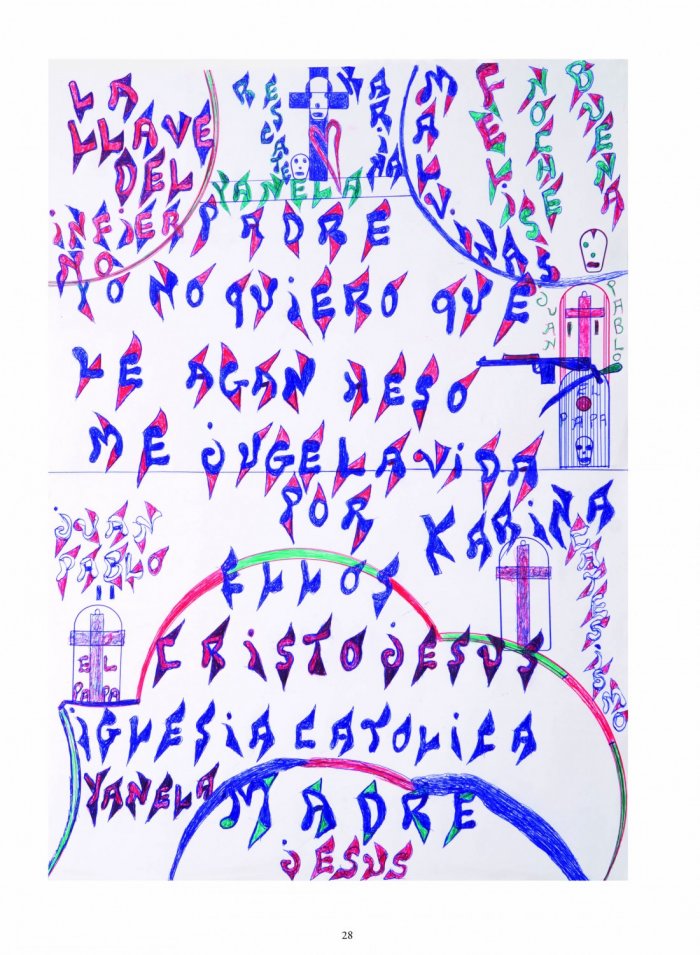 LA
LLAVE
DEL
iNFiER
NO
RESCATE
KARiNA
YANELA
MALViNAS
FELiS
NOCHE
BUENA
PADRE
YO NO QUiERO QUE
LE AGAN HESO
ME JUGE LA ViDA
POR
ELLOS
JUAN
PABLO
EL
PAPA
KARiNA
JUAN
PABLO
II
EL
PAPA
CRiSTO JESUS
iGLESiA CATOLiCA
YANELA
MADRE
JESUS
28